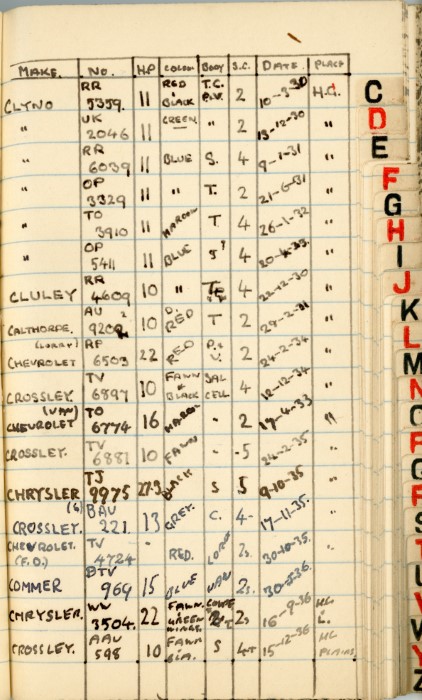 MAKE. No. H.P COLOUR BODY S.C. DATE. PLACE
CLYNO RR 5359. 11 RED & BLACK T.C. 2 10-3-30 H.G.
" UK 2046 11 GREEN " 2 13-12-30 "
" RR 6039 11 BLUE S. 4 9-1-31 "
" OP 3329 11 " T. 2 21-6-31 "
" TO 3910 11 MAROON T 4 26-1-32 "
" OP 5411 11 BLUE 4 "
CLULEY RR 4609 10 " 4 22-12-30 "
CALTHORPE. AU 10 RED T 2 "
(LORRY)
CHEVROLET RP 6503 22 RED 2 24-2-34 "
CROSSLEY. TV 6897 10 FAWN & BLACK SAL CELL 4 12-12-34 "
(VAN)
CHEVROLET TO 6774 16 MAROON " 2 19-4-33 "
CROSSLEY. TV 6881 10 FAWN " 5 24-2-35 "
CHRYSLER TJ 9975 27-3 BLACK S 5 9-10-35 "
(6)
CROSSLEY. BAU 221. 13 GREY. C. 4- 17-11-35. "
CHEVROLET. (F.O.) TV 4724 - RED. 2s 30-10-35. "
COMMER BTV 969 15 BLUE VAN 2s. 30-5-36. "
CHRYSLER. WW 3504. 22 FAWN. GREEN WINGS. COUPE 16-9-36
CROSSLEY. AAU 598 10 FAWN S 15-12-36 HL PLAINS
C
D
E
F
G
H
I
J
K
L
M
N
O
P
Q
R
S
T
U
V
W
Y
Z